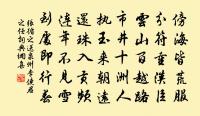 傍海皆荒服
分符重漢臣
雲山百越路
市井十洲人
執玉來朝遠
還珠入貢頻
連年不見雪
到處即行春
張循之送泉州李使君
之任詞典網集